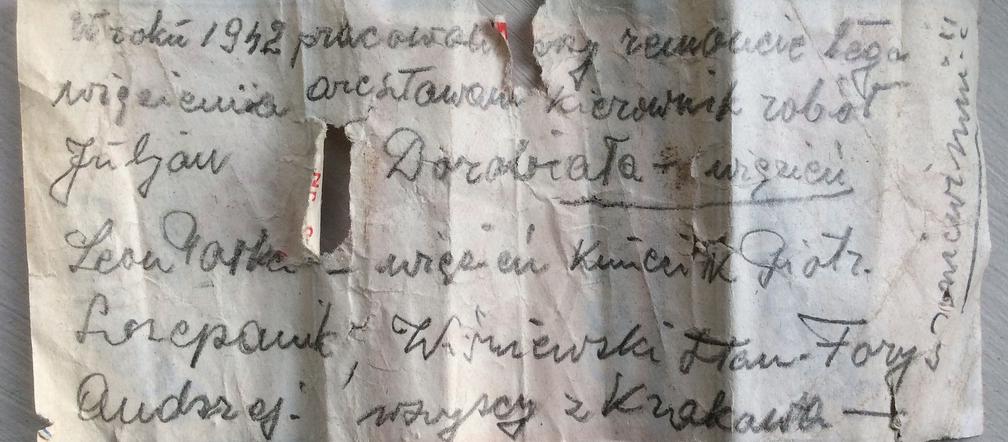 W roku 1942 pracowali przy remoncie tego
więzienia aresztowani kierownik robót
Juljan Dorobiała - więzień
Leon Patka - więzień Piotr.
Szczepanik, Wiśniewski Stan. Forys
Andrzej. wszyscy z Krakowa —